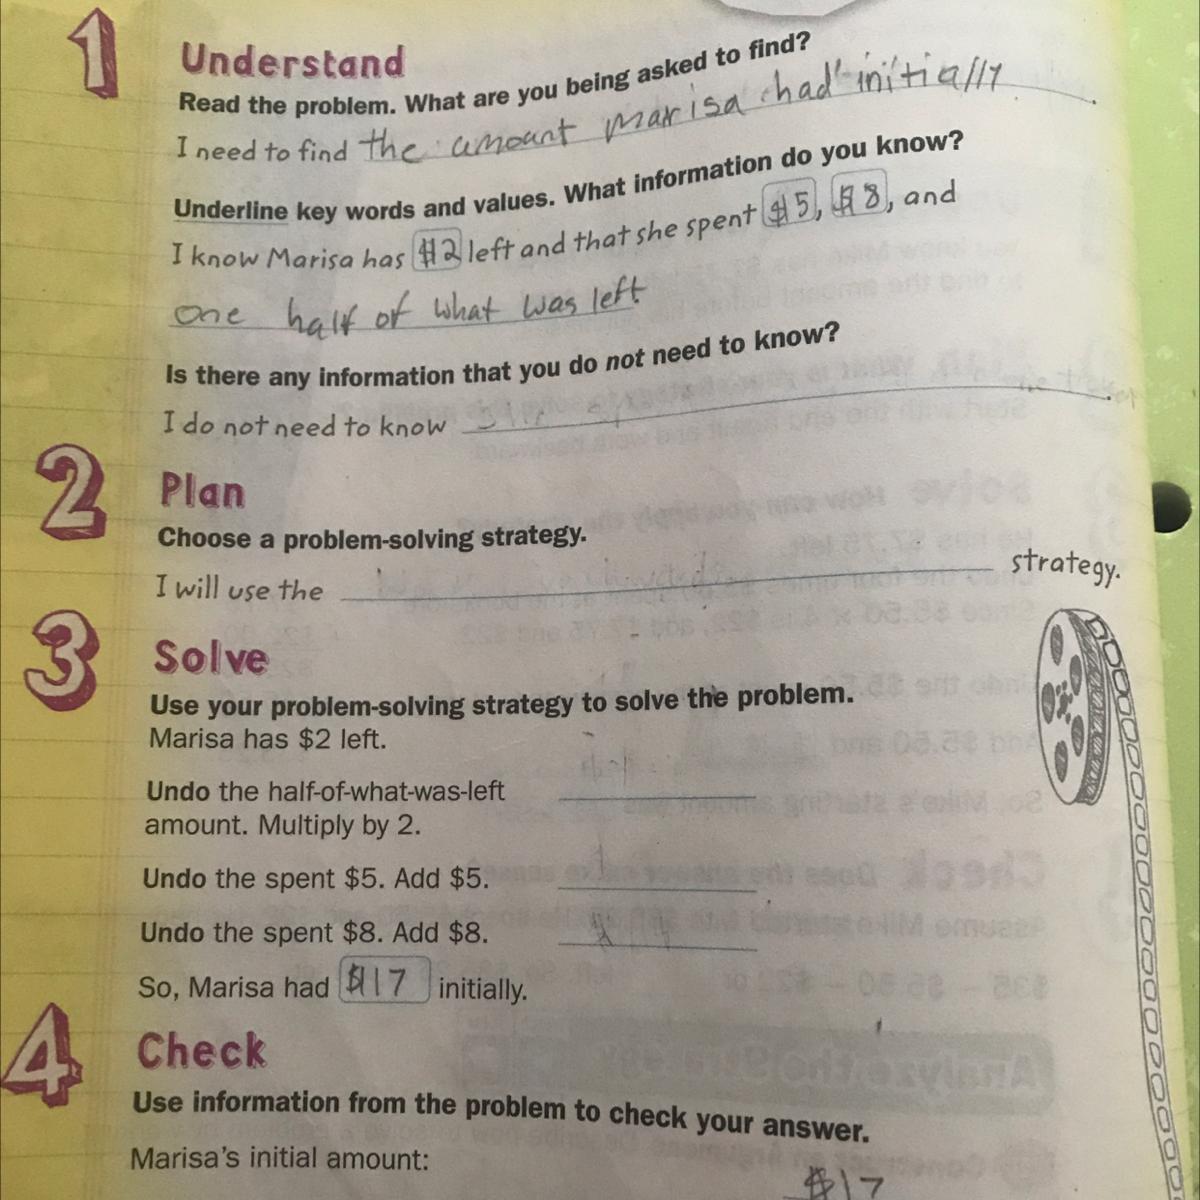 1 Understand
Read the problem. What are you being asked to find?
I need to find the amount Marisa had initially.
Underline key words and values. What information do you know?
I know Marisa has $2 left and that she spent $5, $8, and
one half of what was left
Is there any information that you do not need to know?
I do not need to know
2 Plan
Choose a problem-solving strategy.
I will use the strategy.
3 Solve
Use your problem-solving strategy to solve the problem.
Marisa has $2 left.
Undo the half-of-what-was-left
amount. Multiply by 2.
Undo the spent $5. Add $5.
Undo the spent $8. Add $8.
So, Marisa had $17 initially.
4 Check
Use information from the problem to check your answer.
Marisa's initial amount:
$17